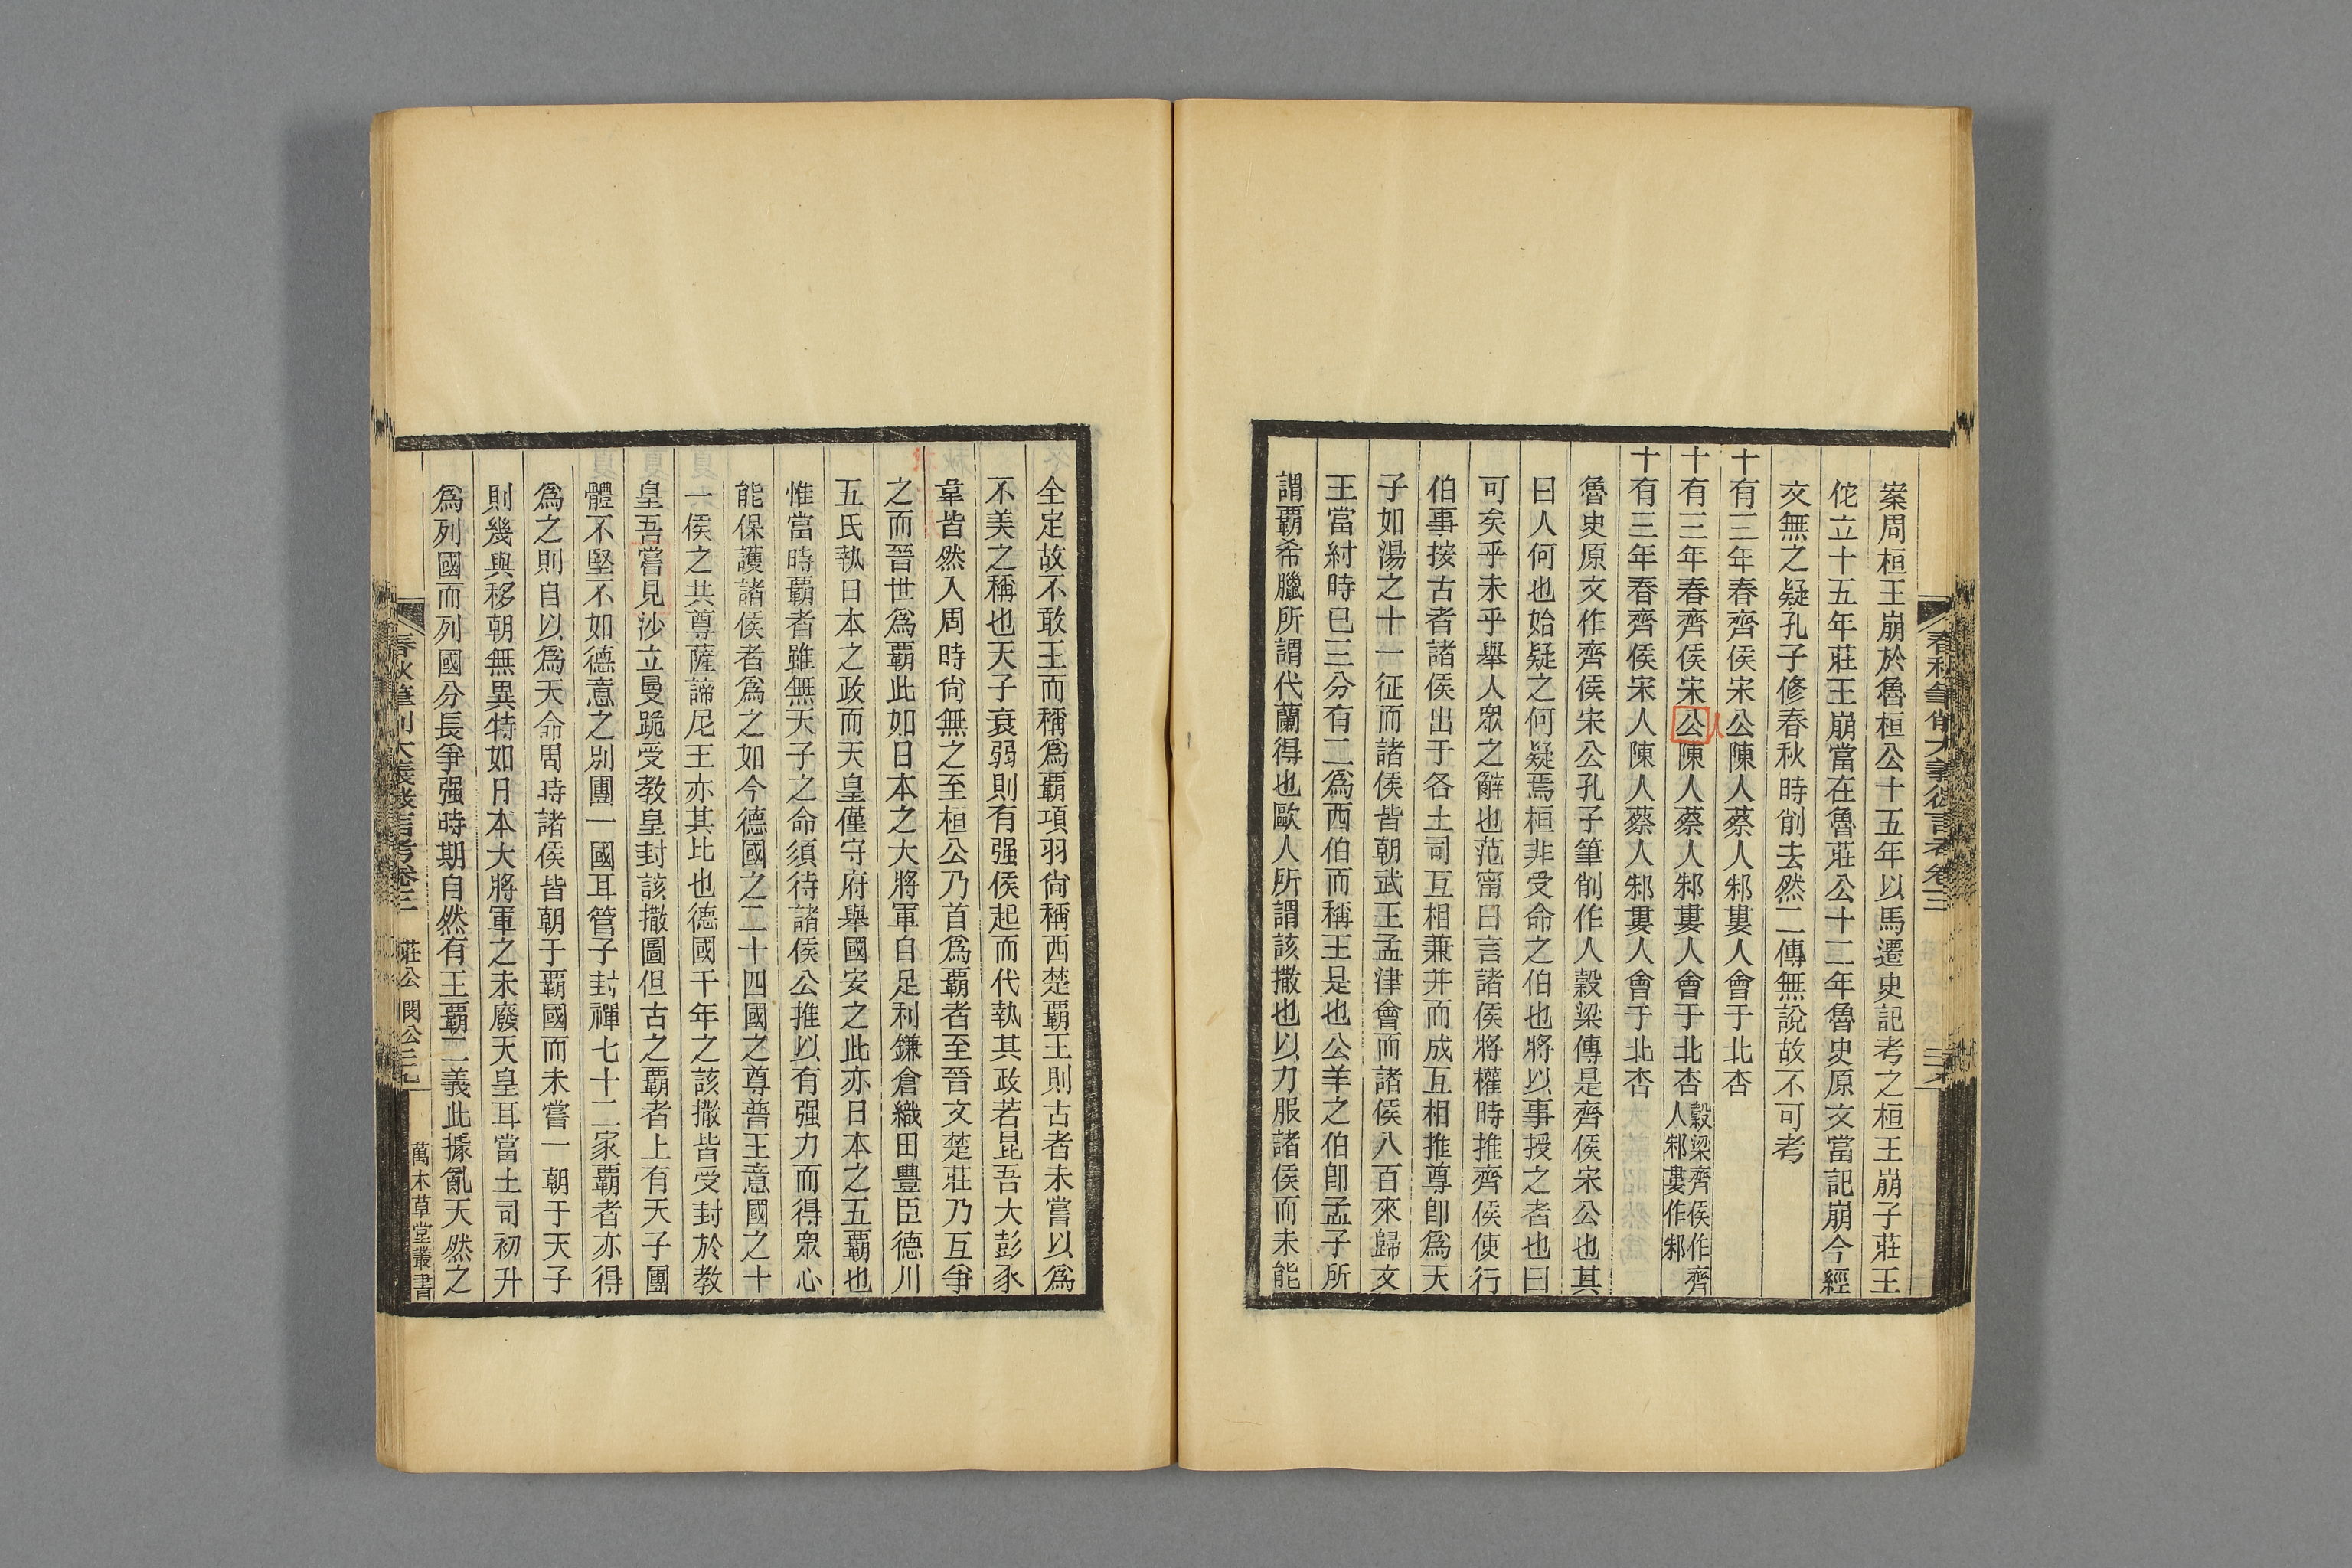 案周桓王崩於魯桓公十五年以馬遷史記考之桓王崩子莊王
佗立十五年莊王崩當在魯莊公十二年魯史原文當記崩今經
文無之疑孔子修春秋時削去然二傳無說故不可考
十有三年春齊侯宋公陳人蔡人邾婁人會于北杏
十有三年春齊侯宋公陳人蔡人邾婁人會于北杏穀梁齊侯作齊人邾婁作邾
人
十有三年春齊侯宋人陳人蔡人邾婁人會于北杏
魯史原文作齊侯宋公孔子筆削作人穀梁傳是齊侯宋公也其
曰人何也始疑之何疑焉桓非受命之伯也將以事授之者也曰
可矣乎未乎舉人眾之辭也范甯曰言諸侯將權時推齊侯使行
伯事按古者諸侯出于各土司互相兼并而成互相推尊卽為天
子如湯之十一征而諸侯皆朝武王孟津會而諸侯八百來歸文
王當紂時已三分有二為西伯而稱王是也公羊之伯卽孟子所
謂霸希臘所謂代蘭得也歐人所謂該撒也以力服諸侯而未能
全定故不敢王而稱為霸項羽尙稱西楚霸王則古者未嘗以為
不美之稱也天子衰弱則有强侯起而代執其政若昆吾大彭豕
韋皆然入周時尙無之至桓公乃首為霸者至晉文楚莊乃互爭
之而晉世為霸此如日本之大將軍自足利鎌倉織田豐臣德川
五氏執日本之政而天皇僅守府舉國安之此亦日本之五霸也
惟當時霸者雖無天子之命須待諸侯公推以有强力而得眾心
能保護諸侯者為之如今德國之二十四國之尊普王意國之十
一侯之共尊薩諦尼王亦其比也德國千年之該撒皆受封於教
皇吾嘗見沙立曼跪受教皇封該撒圖但古之霸者上有天子團
體不堅不如德意之別團一國耳管子封禪七十二家霸者亦得
為之則自以為天命周時諸侯皆朝于霸國而未嘗一朝于天子
則幾與移朝無異特如日本大將軍之未廢天皇耳當土司初升
為列國而列國分長爭强時期自然有王霸二義此據亂天然之
春秋筆削大義微言考卷三 莊公 閔公
萬木草堂叢書